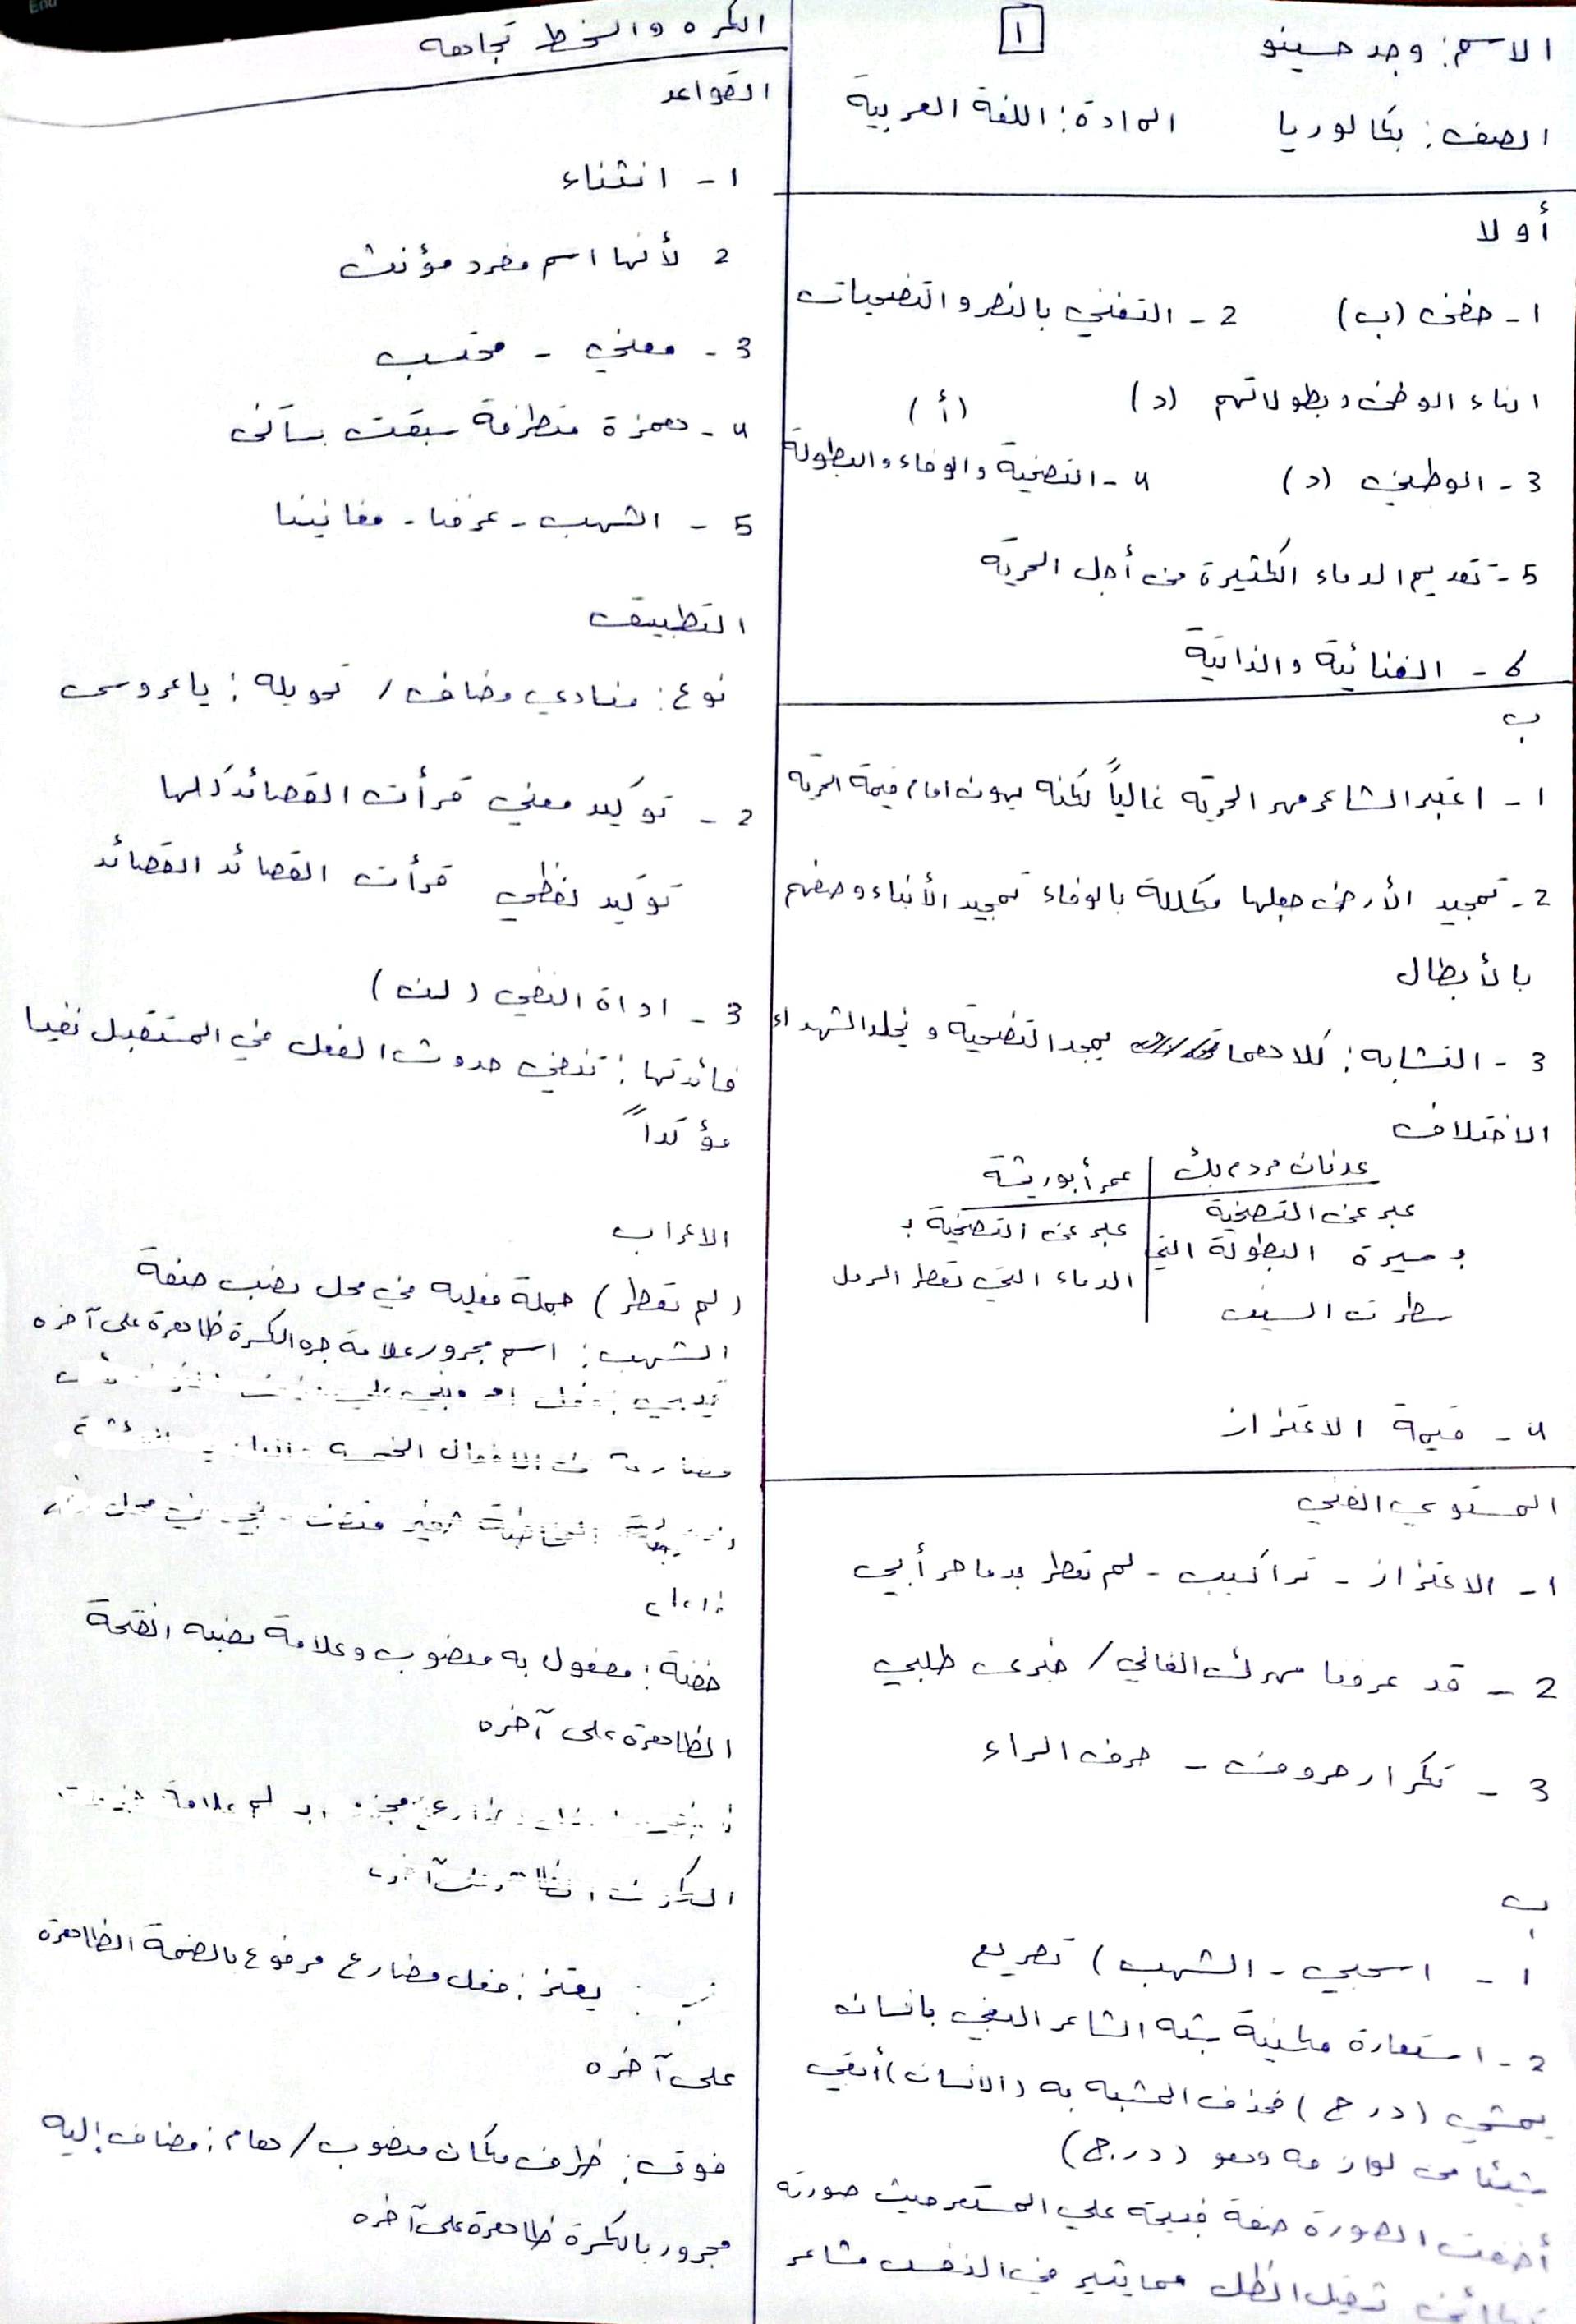 الاسم: وجد حسينو
١
الصف: بكالوريا المادة: اللغة العربية
أولا
١- خفق (ب) 2- التغني بالنصر والتضحيات
ابناء الوطن وبطولاتهم (د) (أ)
3- الوطني (د) 4- التضحية والوفاء والبطولة
5- تقديم الدماء الكثيرة من أجل الحرية
6- الغنائية والذاتية
ب
١- اعتبر الشاعر مهر الحرية غالياً لكنه يهون امام قيمة الحرية
2- تمجيد الأرض جعلها مكللة بالوفاء تمجيد الأبناء وصفهم
بالأبطال
3- التشابه: كلاهما يمجد التضحية ويخلد الشهداء
الاختلاف
عدنان مردم بك عمر أبو ريشة
عبر عن التضحية عبر عن التضحية بـ
بـ مسيرة البطولة التي الدماء التي تعطر الرمل
سطرت السيف
4- قيمة الاعتزاز
المستوى الفني
١- الاعتزاز - تراكيب - لم تعطر بدما حر أبي
2- قد عرفنا مهرك الغالي / خبري طلبي
3- تكرار حروف - حرف الراء
ب
١- اسحبي - الشهب) تصريع
2- استعارة مكنية شبه الشاعر البغي بانسان
يمشي (درج) فحذف المشبه به (الانسان) أبقى
شيئا من لوازمه وهو (درج)
أضفت الصورة صفة قبيحة على المستعمر حيث صورته
ثقيل الظل مما يثير في النفس مشاعر
الكره والسخط تجاهه
القواعد
١- انثناء
2 لأنها اسم مفرد مؤنث
3- معنى - محتسب
4- همزة متطرفة سبقت بساكن
5- الشهب - عرفنا - مغانينا
التطبيق
نوع: منادى مضاف / تحويله: يا عروس
2- توكيد معنوي قرأت القصائد كلها
توكيد لفظي قرأت القصائد القصائد
3- اداة النفي (لن)
فائدتها: تنفي حدوث الفعل في المستقبل نفيا
مؤكداً
الاعراب
(لم تعطر) جملة فعلية في محل نصب صفة
الشهب: اسم مجرور علامة جره الكسرة ظاهرة على آخره
حفنة: مفعول به منصوب وعلامة نصبه الفتحة
الظاهرة على آخره
يعتز: فعل مضارع مرفوع بالضمة الظاهرة
على آخره
فوق: ظرف مكان منصوب / هام: مضاف إليه
مجرور بالكسرة ظاهرة على آخره